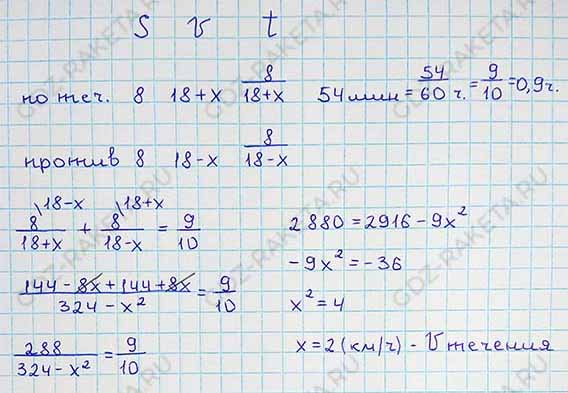 S V t
по теч. 8 18+x 8/(18+x) 54 мин = 54/60 ч. = 9/10 = 0,9 ч.
против 8 18-x 8/(18-x)
8\18-x/(18+x) + 8\18+x/(18-x) = 9/10
(144-8x+144+8x)/(324-x²) = 9/10
288/(324-x²) = 9/10
2880=2916-9x²
-9x²=-36
x²=4
x=2(км/ч) - V течения
GDZ-RAKETA.RU
GDZ-RAKETA.RU
GDZ-RAKETA.RU
GDZ-RAKETA.RU